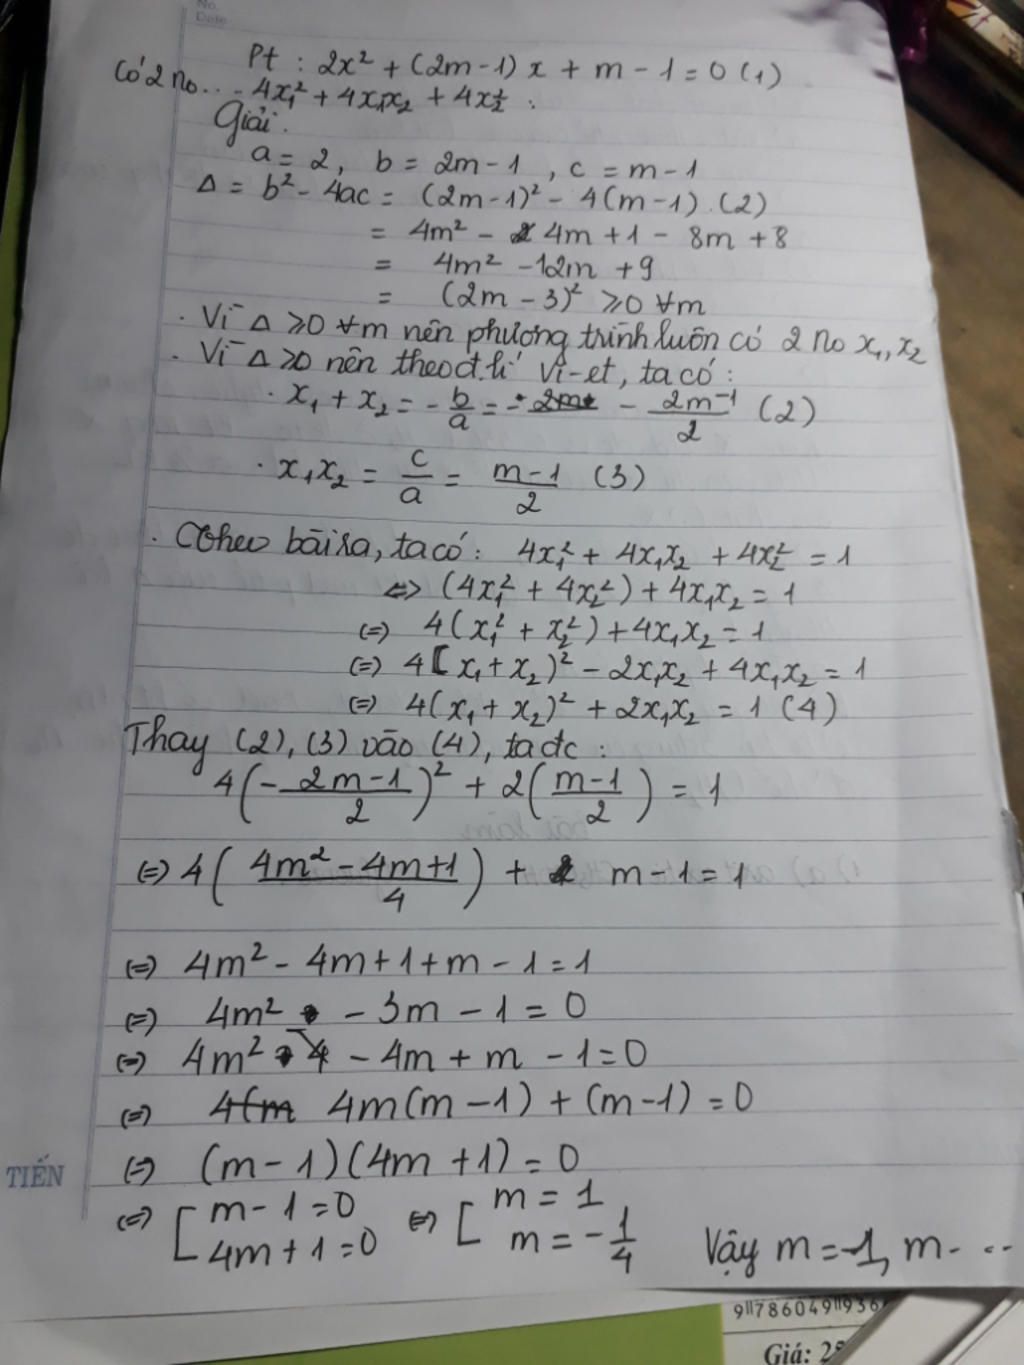 No.
Date
Pt : 2x² + (2m-1)x + m - 1 = 0 (1)
Có 2 no... 4x₁² + 4x₁x₂ + 4x₂² :
Giải.
a = 2, b = 2m - 1 , c = m - 1
Δ = b² - 4ac = (2m-1)² - 4(m-1).(2)
= 4m² - 4m + 1 - 8m + 8
= 4m² - 12m + 9
= (2m - 3)² ≥0 ∀m
. Vì Δ ≥0 ∀m nên phương trình luôn có 2 no x₁, x₂
. Vì Δ ≥0 nên theo đ.lí Vi-et, ta có :
. x₁ + x₂ = - b/a = - (2m-1)/2 (2)
. x₁x₂ = c/a = (m-1)/2 (3)
. Theo bài ra, ta có : 4x₁² + 4x₁x₂ + 4x₂² = 1
<=> (4x₁² + 4x₂²) + 4x₁x₂ = 1
(=) 4(x₁² + x₂²) + 4x₁x₂ = 1
(=) 4[x₁ + x₂)² - 2x₁x₂ + 4x₁x₂ = 1
(=) 4(x₁ + x₂)² + 2x₁x₂ = 1 (4)
Thay (2), (3) vào (4), ta đc :
4(- (2m-1)/2)² + 2((m-1)/2) = 1
(=) 4((4m² - 4m+1)/4) + m - 1 = 1
(=) 4m² - 4m + 1 + m - 1 = 1
(=) 4m² - 3m - 1 = 0
(=) 4m² - 4m + m - 1 = 0
(=) 4m(m-1) + (m-1) = 0
(=) (m-1)(4m+1) = 0
(=) [ m - 1 = 0 (=) [ m = 1
4m + 1 = 0 m = - 1/4
Vậy m = -1, m - ...
TIẾN
9 786049 936
Giá: 2